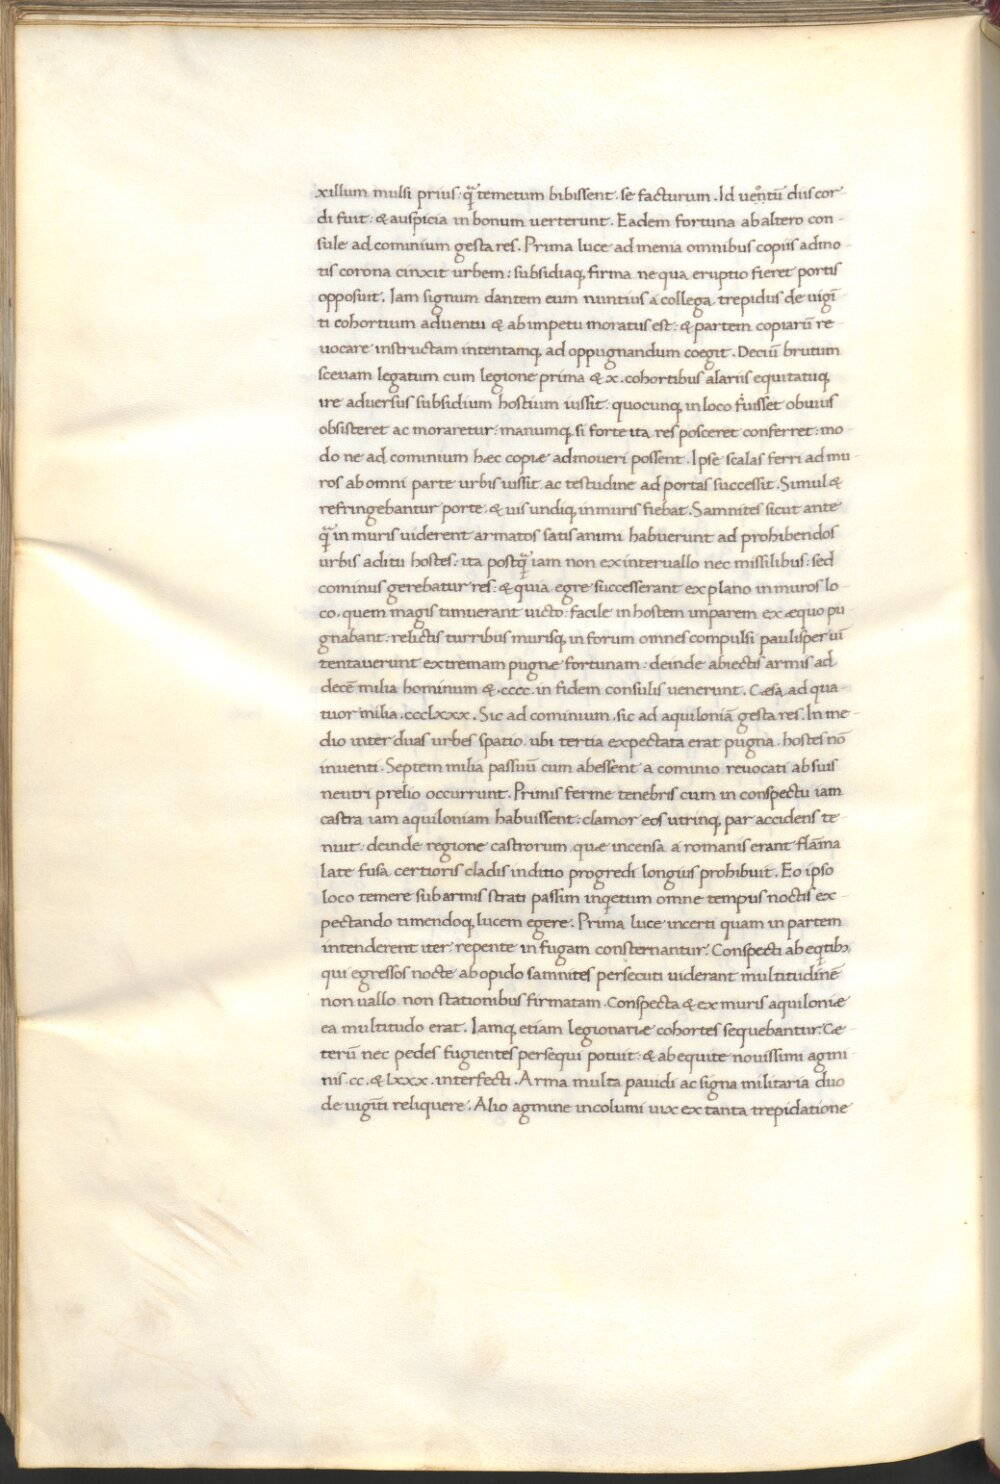 xillum mulsi prius: q̃ temetum bibissent se facturum. Id uentũ diis cor-
di fuit: & auspicia in bonum uerterunt. Eadem fortuna ab altero con-
sule ad cominium gesta res. Prima luce ad menia omnibus copiis admo-
tis corona cinxit urbem: subsidiaq; firma ne qua eruptio fieret portis
opposuit. Iam signum dantem eum nuntius a collega trepidus de uigĩ-
ti cohortium aduentu & ab impetu moratus est: & partem copiarũ re-
uocare instructam intentamq; ad oppugnandum coegit. Deciũ brutum
sceuam legatum cum legione prima & x. cohortibus alariis equitatuq;
ire aduersus subsidium hostium iussit: quocunq; in loco fuisset obuius
obsisteret ac moraretur: manumq; si forte ita res posceret conferret: mo-
do ne ad cominium hæc copiæ admoueri possent. Ipse scalas ferri ad mu-
ros ab omni parte urbis iussit ac testudine ad portas successit. Simul &
refringebantur porte: & uis undiq; in muris fiebat. Samnites sicut ante
q̃ in muris uiderent armatos satis animi habuerunt ad prohibendos
urbis aditu hostes: ita postq̃ iam non ex interuallo nec missilibus: sed
cominus gerebatur res: & quia egre successerant ex plano in muros lo-
co. quem magis timuerant uicto: facile in hostem imparem ex æquo pu-
gnabant: relictis turribus murisq; in forum omnes compulsi paulisper ui
tentauerunt extremam pugnæ fortunam: deinde abiectis armis ad
decẽ milia hominum &.cccc. in fidem consulis uenerunt. Cæsa ad qua-
tuor milia.ccclxxx. Sic ad cominium. sic ad aquiloniã gesta res. In me-
dio inter duas urbes spatio. ubi tertia expectata erat pugna. hostes nõ
inuenti. Septem milia passuũ cum abessent a cominio reuocati ab suis
neutri prelio occurrunt. Primis ferme tenebris cum in conspectu iam
castra iam aquiloniam habuissent: clamor eos utrinq; par accidens te-
nuit: deinde regione castrorum quæ incensa a romanis erant flãma
late fusa certioris cladis inditio progredi longius prohibuit. Eo ipso
loco temere sub armis strati passim inq̇etum omne tempus noctis ex-
pectando timendoq; lucem egere. Prima luce incerti quam in partem
intenderent iter: repente in fugam consternantur. Conspecti ab eq̇tib;
qui egressos nocte ab opido samnites persecuti uiderant multitudinẽ
non uallo non stationibus firmatam. Conspecta & ex muris aquiloniæ
ea multitudo erat. Iamq; etiam legionariæ cohortes sequebantur. Cæ-
terũ nec pedes fugientes persequi potuit: & ab equite nouissimi agmi-
nis.cc.& lxxx. interfecti. Arma multa pauidi ac signa militaria duo
de uigĩti reliquere. Alio agmine incolumi uix ex tanta trepidatione